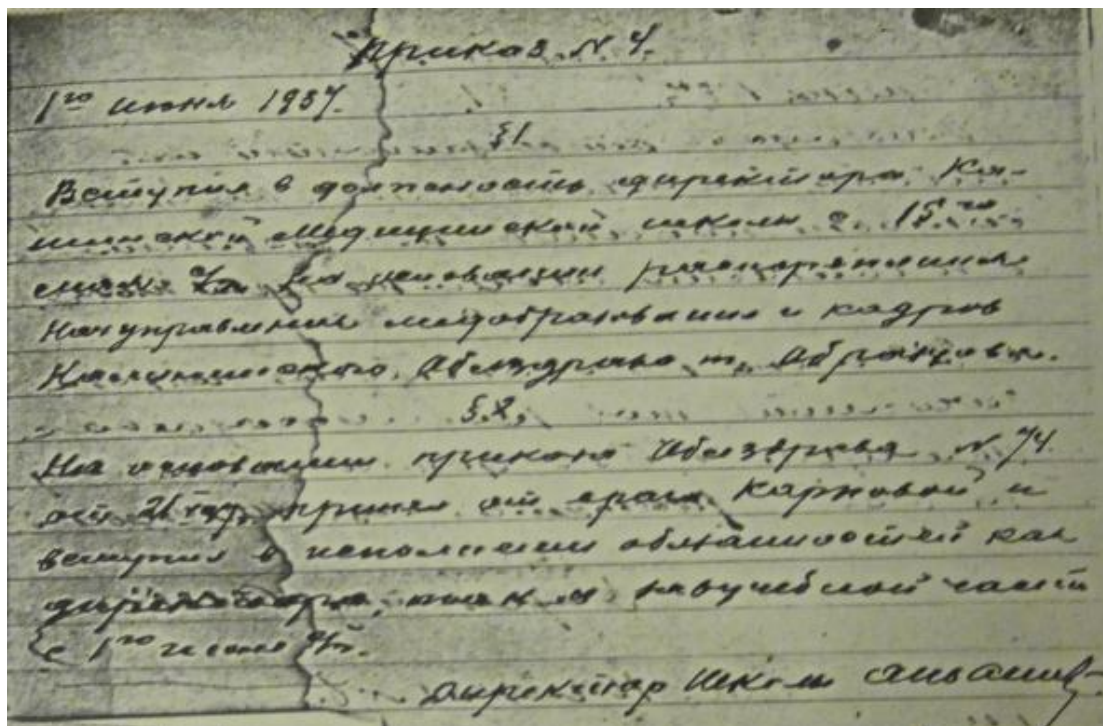 Приказ N 4.
1го июня 1937.
§1
Вступил в должность директора Ка-
шинской Медицинской школы с 15го
мая на основании распоряжения
Начуправления медобразования и кадров
Калининского Облздрава т. Абрамова.
§2.
На основании приказа Облздрава N 74
от 26 принял от врача Карповой и
вступил в исполнение обязанностей как
директора, так и завучебной части
с 1го июня
Директор Школы